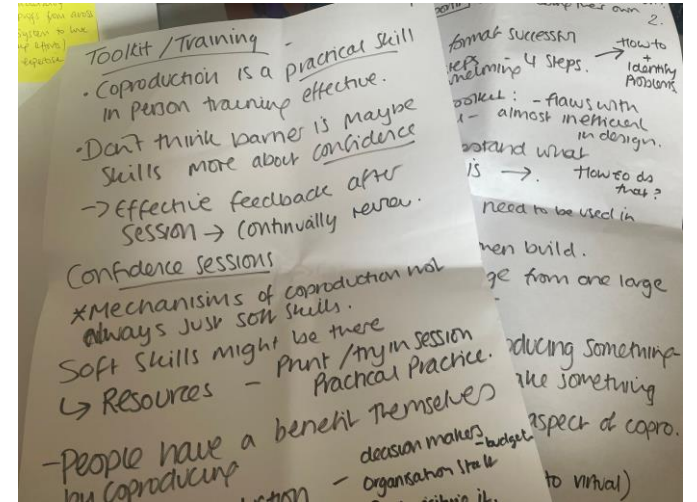 system to
expertise
Toolkit / Training -
• Coproduction is a practical skill
in person training effective.
• Don't think barrier is maybe
skills more about confidence
-> Effective feedback after
session -> continually review.
Confidence sessions
*Mechanisms of coproduction not
always just soft skills.
Soft skills might be there
↳ Resources - Print / try in session
Practical Practice.
- People have a benefit themselves
by coproducing
decision makers - budget
- Organisation
their own
2.
format successful
4 steps.
-> How to
+
Identify
Problems
: - flaws with
- almost inefficient
in design.
what
is ->. How to do
that?
need to be used in
build.
from one large
something
something
aspect of copro.
to virtual)